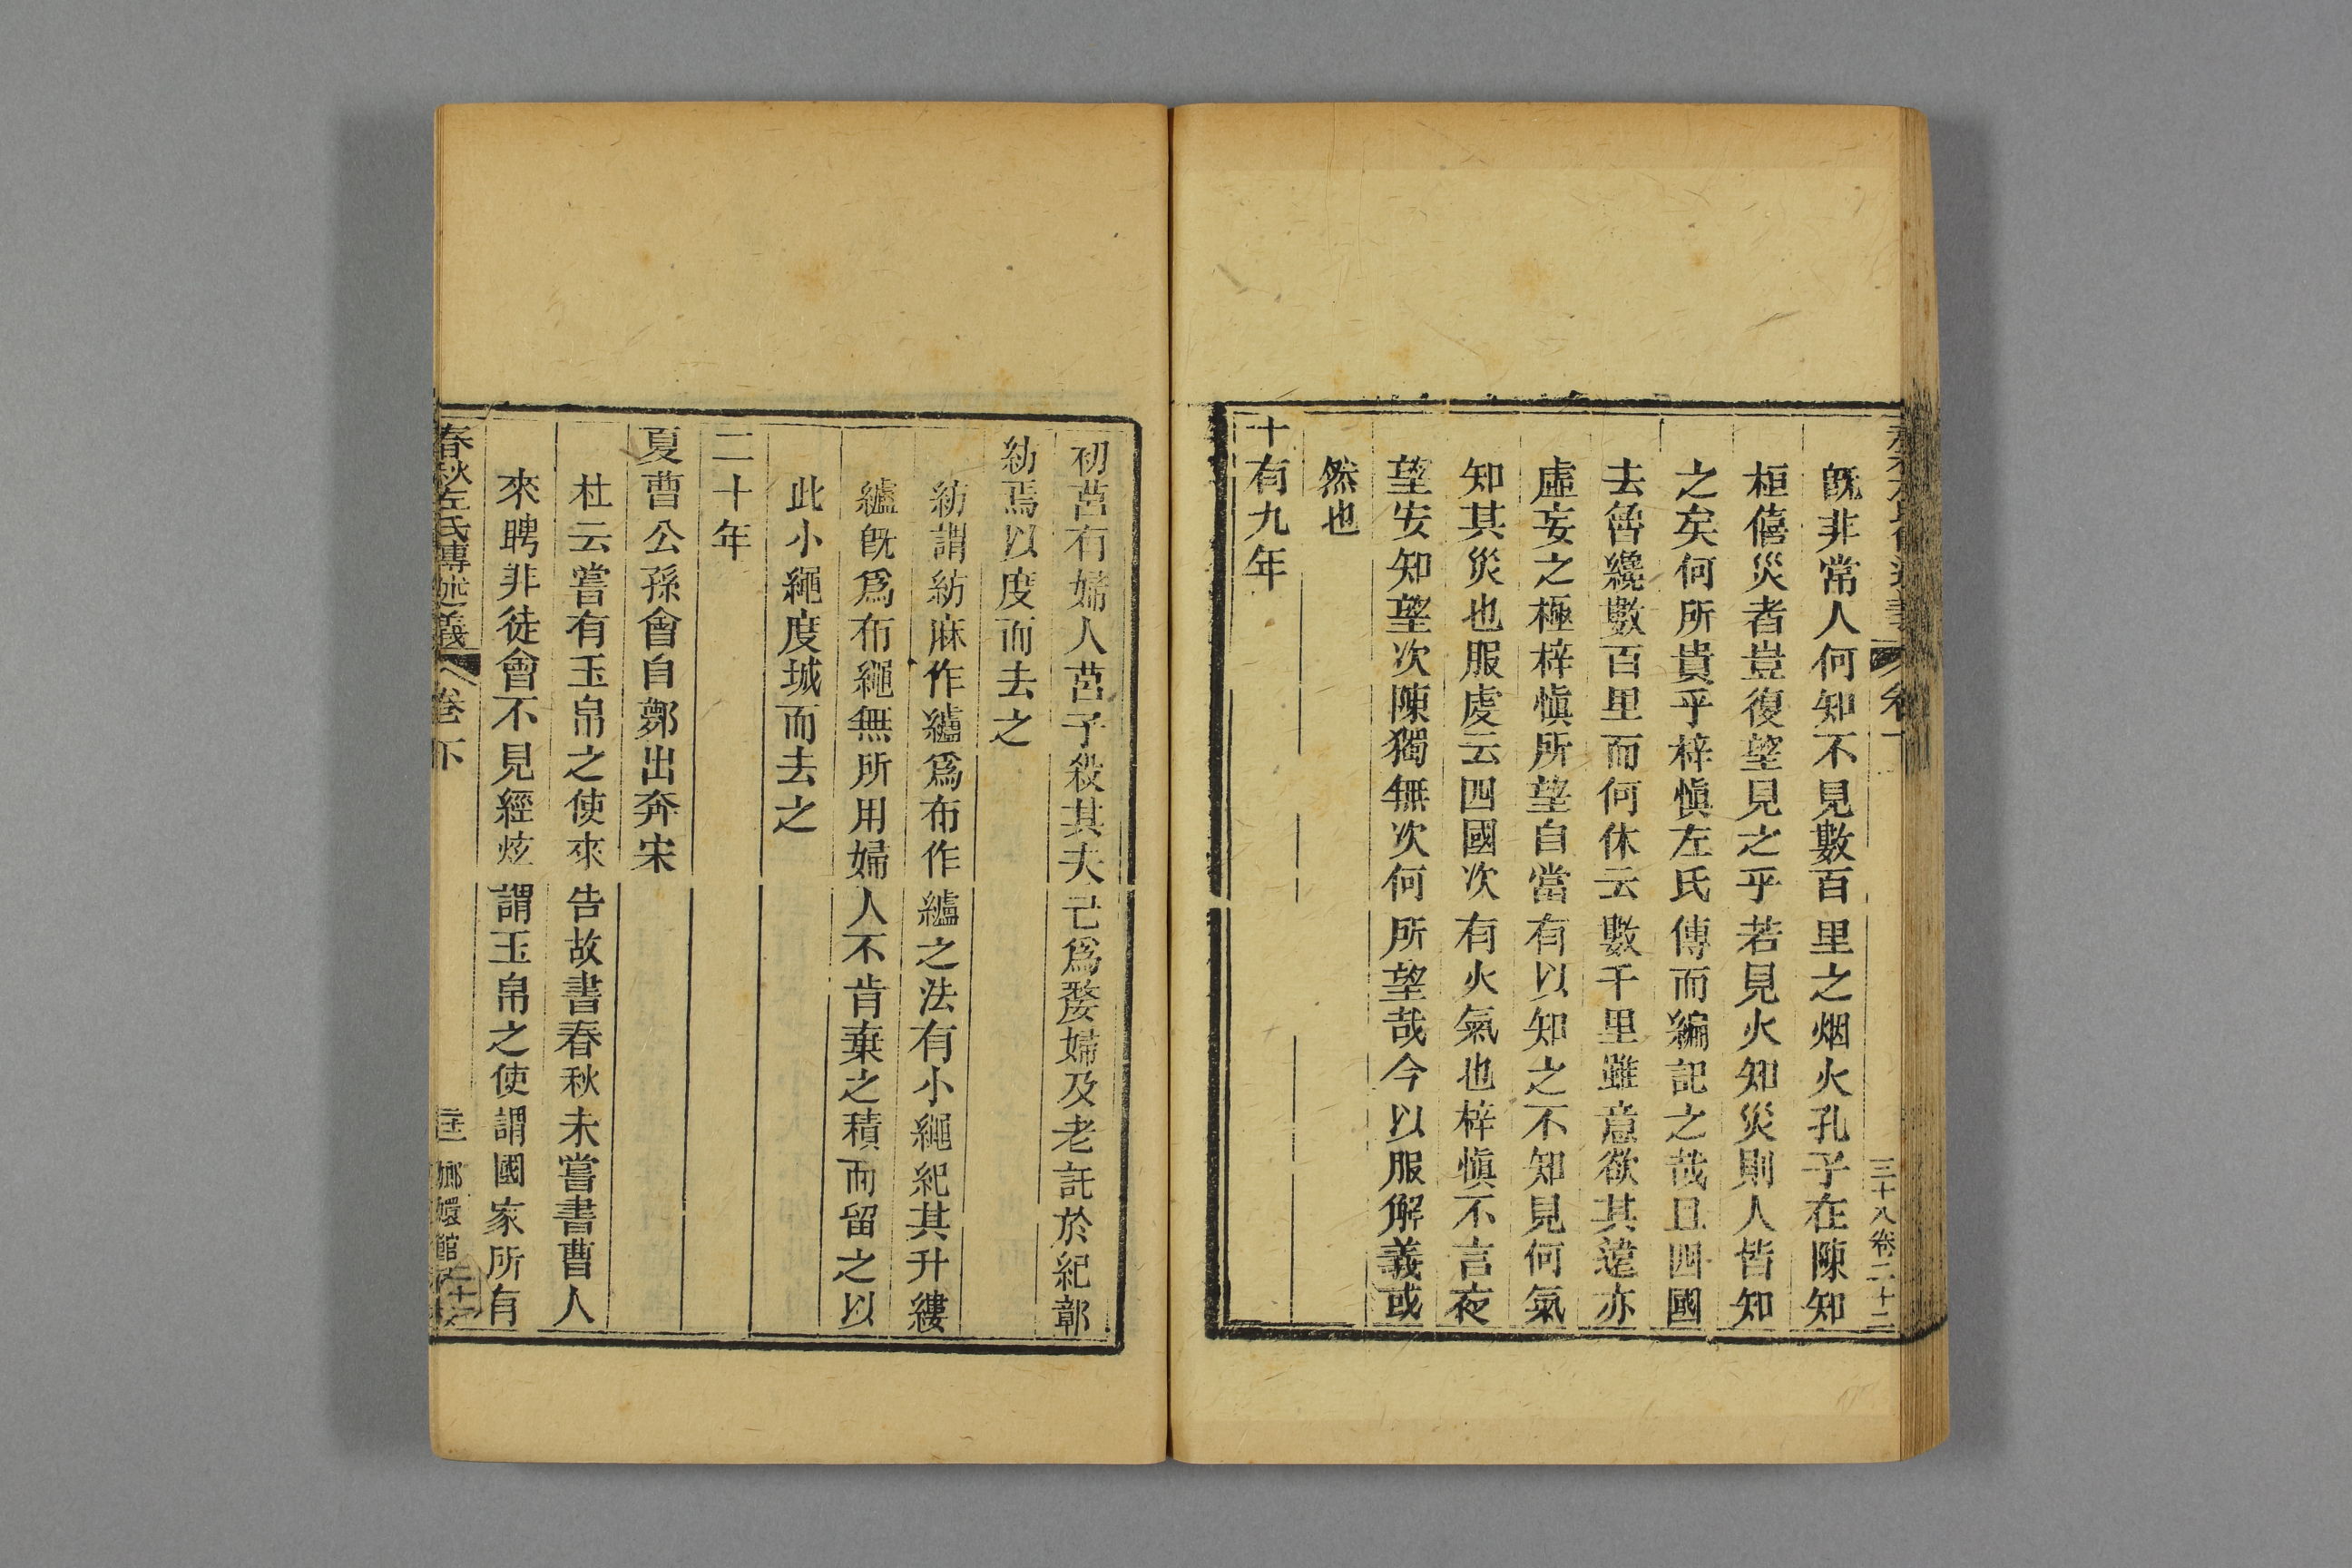 三十八卷二十二
既非常人何知不見數百里之烟火孔子在陳知
桓僖災者豈復望見之乎若見火知災則人皆知
之矣何所貴乎梓愼左氏傳而編記之哉且四國
去魯纔數百里而何休云數千里雖意欲其遠亦
虛妄之極梓愼所望自當有以知之不知見何氣
知其災也服虔云四國次有火氣也梓愼不言夜
望安知望次陳獨無次何所望哉今以服解義或
然也
十有九年
初莒有婦人莒子殺其夫已爲嫠婦及老託於紀鄣
紡焉以度而去之
紡謂紡麻作纑爲布作纑之法有小繩紀其升縷
纑旣爲布繩無所用婦人不肯棄之積而留之以
此小繩度城而去之
二十年
夏曹公孫會自鄸出奔宋
杜云嘗有玉帛之使來告故書春秋未嘗書曹人
來聘非徒會不見經炫謂玉帛之使謂國家所有
春秋左氏傳述義 卷下